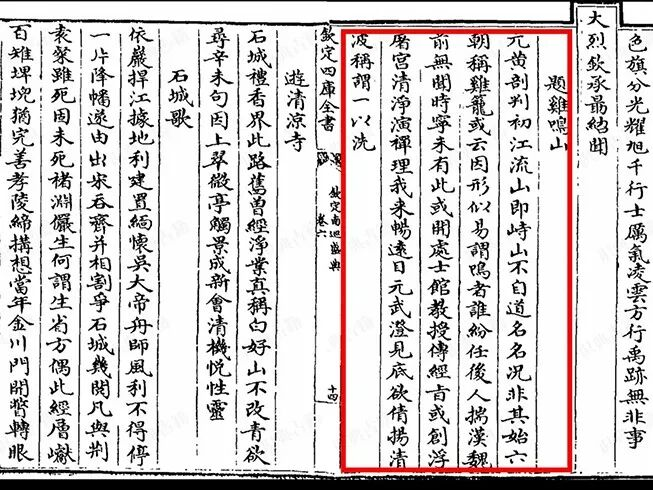 色旗分光耀旭千行士厲氣凌雲方行禹跡無非事
大烈欽承最紹聞
題雞鳴山
元黄剖判初江流山即峙山不自道名名况非其始六
朝稱雞籠或云因形似易謂鳴者誰紛任後人揣漢魏
前無聞時寧未有此或開處士館教授傳經旨或創浮
屠宫清淨演禪理我来暢遠目元武澄見底欲倩揚清
波稱謂一以洗
欽定四庫全書
欽定南巡盛典
卷六
十四
遊清凉寺
石城禮香界此路舊曾經淨業真稱白好山不改青欲
尋辛未句因上翠微亭觸景成新會清機悦性靈
石城歌
依巖捍江據地利建置緬懷吳大帝舟師風利不得停
一片降幡遂由出宋吞齊并相割爭石城幾閱凡與判
袁粲雖死固未死褚淵儼生何謂生省方偶此經層巘
百雉埤堄猶完善孝陵締搆想當年金川門開瞥轉眼